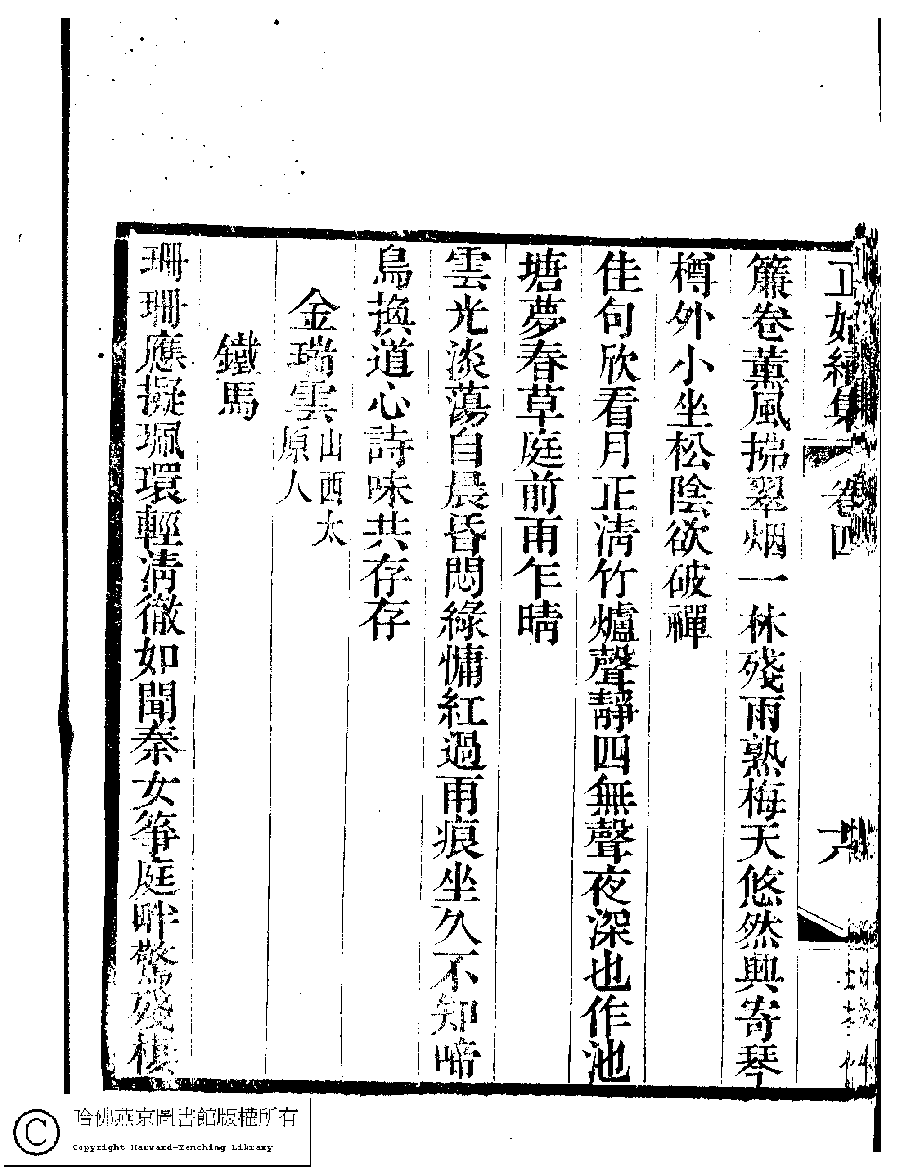 正始續集 卷四 六
簾卷薰風拂翠烟一林殘雨熟梅天悠然興寄琴
樽外小坐松陰欲破禪
佳句欣看月正淸竹爐聲靜四無聲夜深也作池
塘夢春草庭前雨乍晴
雲光淡蕩自晨昏悶綠慵紅過雨痕坐久不知啼
鳥換道心詩味共存存
金瑞雲山西太原人
鐵馬
珊珊應擬珮環輕淸徹如聞秦女箏庭畔驚殘棋
哈佛燕京圖書館版權所有
Copyright Harvard-Yenching Library